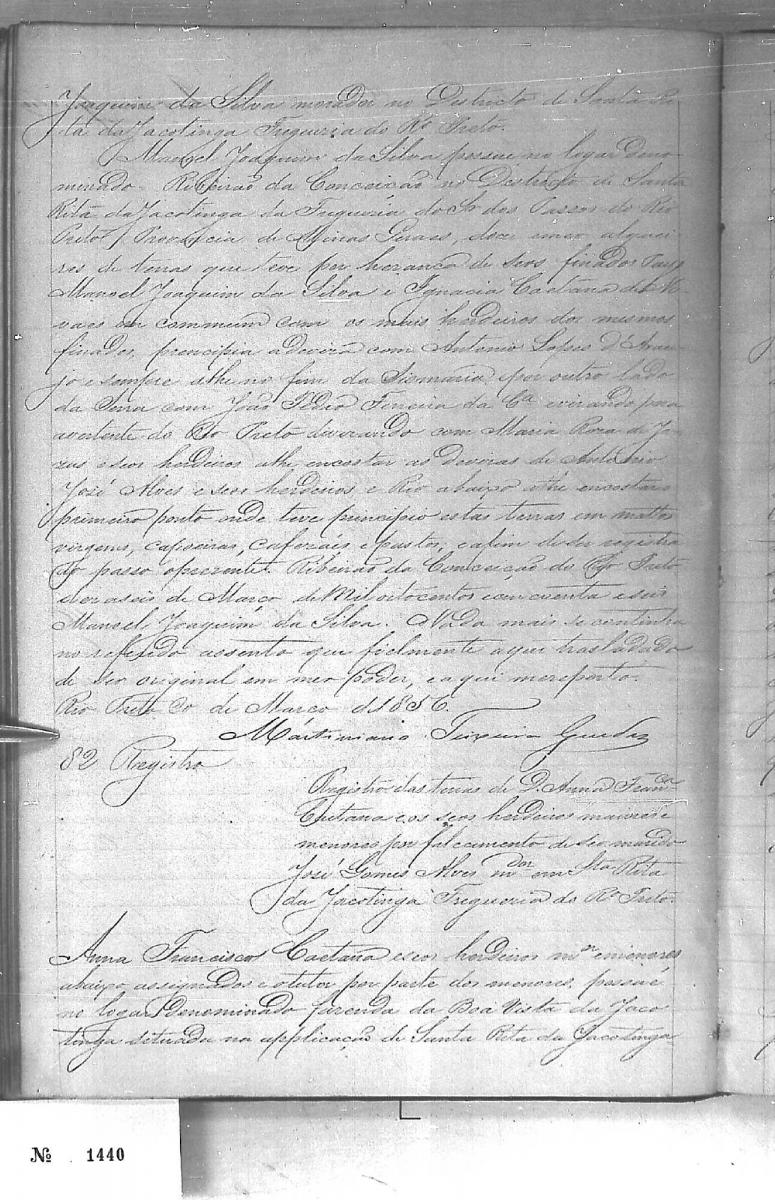 Joaquim da Silva morador no Destricto de Santa Ri-
ta da Jacotinga Fregueria do Rº Preto.
Manoel Joaquim da Silva possue no logar deno-
minado Ribeirão da Conceição no Destricto de Santa
Rita da Jacotinga da Fregueria do Sr dos Passos do Rio
Preto Provincia de Minas Geraes, doze alquei-
res de terras que teve por herança de seos finados Pays
Manoel Joaquim da Silva e Ignacia Caetana de No-
vaes em commum com os mais herdeiros dos mesmos
finados, principia a devira com Antonio Lopes d'Arau-
jo e sempre athe no fim da Sismaria, por outro lado
da Serra com João Pedro Ferreira da Cª e virando para
avertente do Rio Preto divizando com Maria Roza de Je-
zus e seos herdeiros athe encostar as deviras de Antonio
José Alves e seos herdeiros e Rio abaixo athe encostar a
primeiro ponto onde teve principio estas terras em mattos
virgens, capoeiras, cafezais e pastos, e afim de dar registra
do passo oprezente. Ribeirão da Conceição do Rio Preto
de Março de Mil oito centos e cincuenta e seis
Manoel Joaquim da Silva. Nada mais se continha
no referido assento que fielmente aqui trasladado
de seo original em meo poder, e aqui mereporto.
Rio Preto 30 de Março d 1856.
Martiniano Teixeira Guedes
82 Registro
Registro das terras de D. Anna Francª
Caetana e os seos herdeiros maiores e
menores por falecimento de seo marido
José Gomes Alves mdor em Sta Rita
da Jacotinga Fregueria do Rº Preto.
Anna Francisca Caetana e seos herdeiros mres e menores
abaixo assignados e o tutor por parte dos menores, possue
no logar Denominado fazenda da Boa Vista da Jaco
tinga situada na applicação de Santa Rita da Jacotinga
Nº 1440